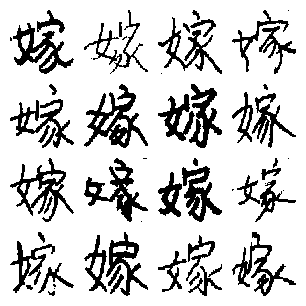 嫁嫁嫁嫁
嫁嫁嫁嫁
嫁嫁嫁嫁
嫁嫁嫁嫁